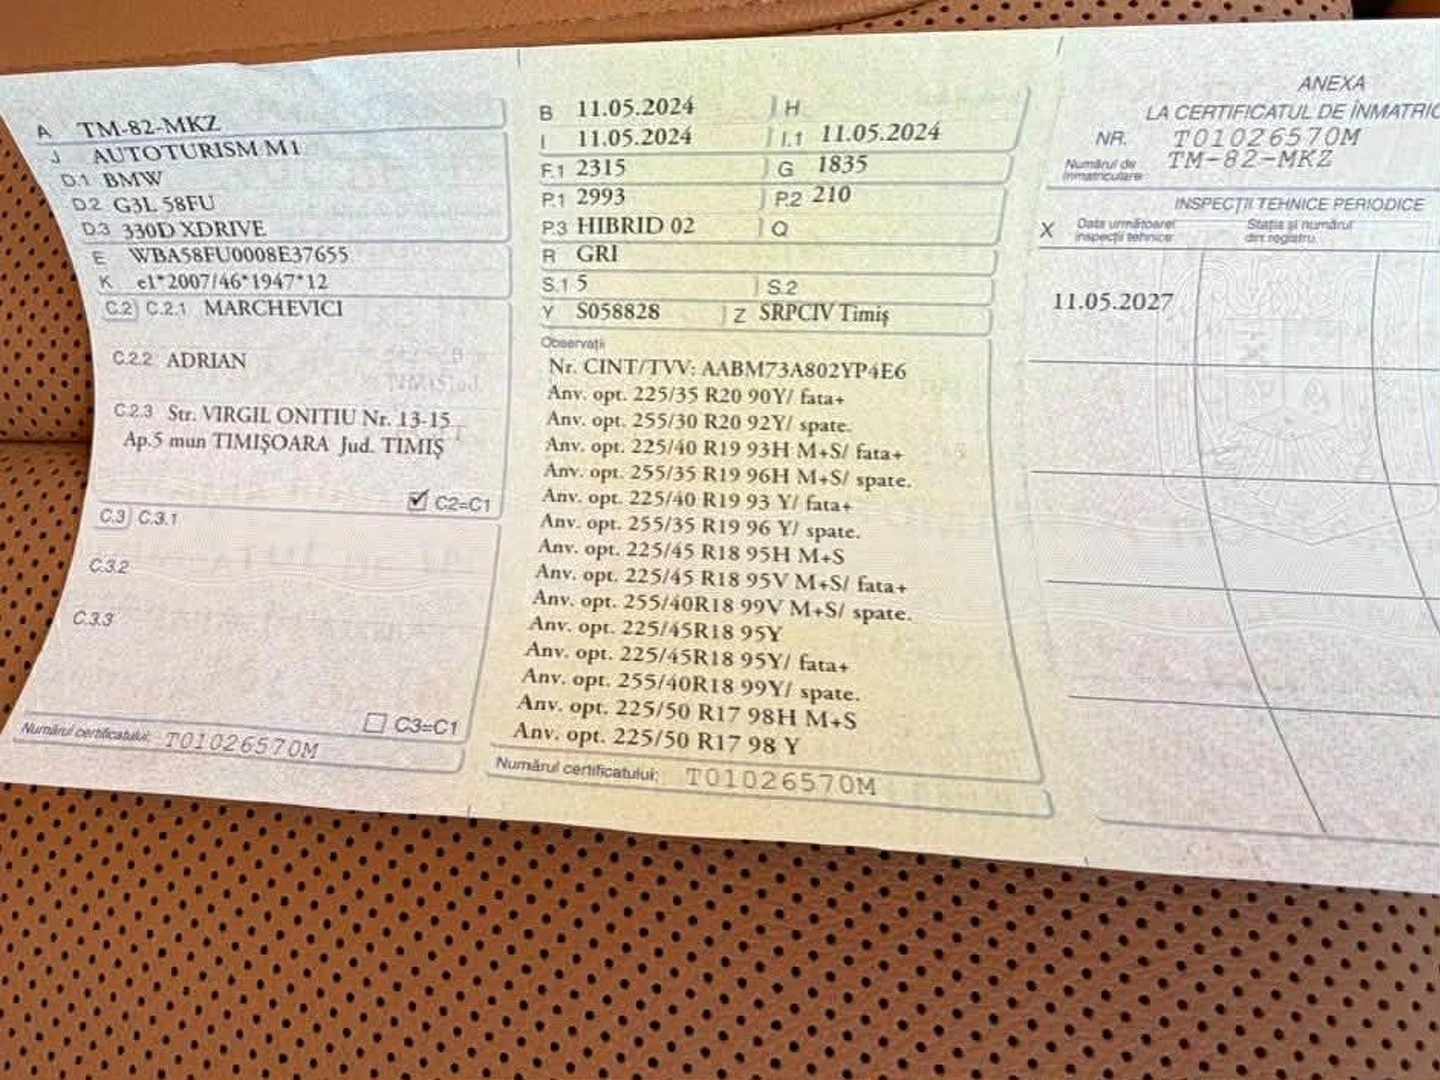 A TM-82-MKZ
J AUTOTURISM M1
D.1 BMW
D.2 G3L 58FU
D.3 330D XDRIVE
E WBA58FU0008E37655
K e1*2007/46*1947*12
C.2 C.2.1 MARCHEVICI
C.2.2 ADRIAN
C.2.3 Str. VIRGIL ONITIU Nr. 13-15
Ap.5 mun TIMIȘOARA Jud. TIMIȘ
C2=C1
C.3 C.3.1
C.3.2
C.3.3
C3=C1
Numărul certificatului: T01026570M
B 11.05.2024 H
I 11.05.2024 I.1 11.05.2024
F.1 2315 G 1835
P.1 2993 P.2 210
P.3 HIBRID 02 Q
R GRI
S.1 5 S.2
Y S058828 Z SRPCIV Timiș
Observații
Nr. CINT/TVV: AABM73A802YP4E6
Anv. opt. 225/35 R20 90Y/ fata+
Anv. opt. 255/30 R20 92Y/ spate.
Anv. opt. 225/40 R19 93H M+S/ fata+
Anv. opt. 255/35 R19 96H M+S/ spate.
Anv. opt. 225/40 R19 93 Y/ fata+
Anv. opt. 255/35 R19 96 Y/ spate.
Anv. opt. 225/45 R18 95H M+S
Anv. opt. 225/45 R18 95V M+S/ fata+
Anv. opt. 255/40R18 99V M+S/ spate.
Anv. opt. 225/45R18 95Y
Anv. opt. 225/45R18 95Y/ fata+
Anv. opt. 255/40R18 99Y/ spate.
Anv. opt. 225/50 R17 98H M+S
Anv. opt. 225/50 R17 98 Y
Numărul certificatului: T01026570M
ANEXA
LA CERTIFICATUL DE ÎNMATRIC
NR. T01026570M
Numărul de înmatriculare TM-82-MKZ
INSPECȚII TEHNICE PERIODICE
X Data următoarei inspecții tehnice Stația și numărul din registru
11.05.2027